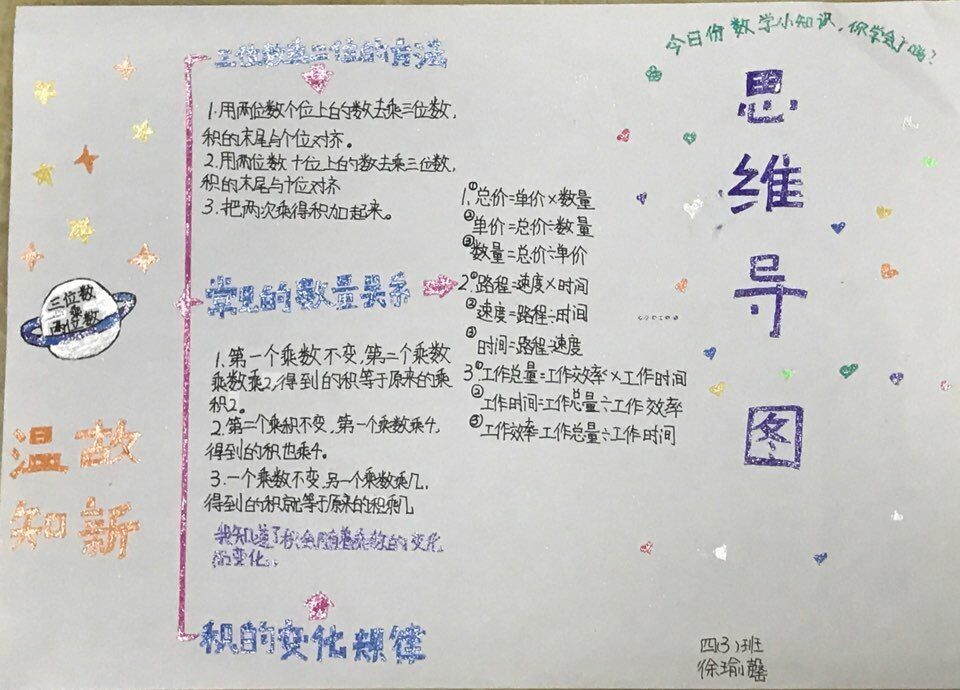 今日份数学小知识，你学会了吗？
思维导图
三位数乘两位数
温故
知新
1.用两位数个位上的数去乘三位数，
积的末尾与个位对齐。
2.用两位数十位上的数去乘三位数，
积的末尾与十位对齐
3.把两次乘得积加起来。
常见的数量关系
1.①总价=单价×数量
②单价=总价÷数量
③数量=总价÷单价
2.①路程=速度×时间
②速度=路程÷时间
③时间=路程÷速度
3.①工作总量=工作效率×工作时间
②工作时间=工作总量÷工作效率
③工作效率=工作总量÷工作时间
1.第一个乘数不变，第二个乘数
乘数乘2，得到的积等于原来的乘
积2。
2.第二个乘积不变，第一个乘数乘4，
得到的积也乘4。
3.一个乘数不变，另一个乘数乘几，
得到的积就等于原来的积乘几
我知道了积会随着乘数的变化
而变化。
积的变化规律
四(3)班
徐瑜馨